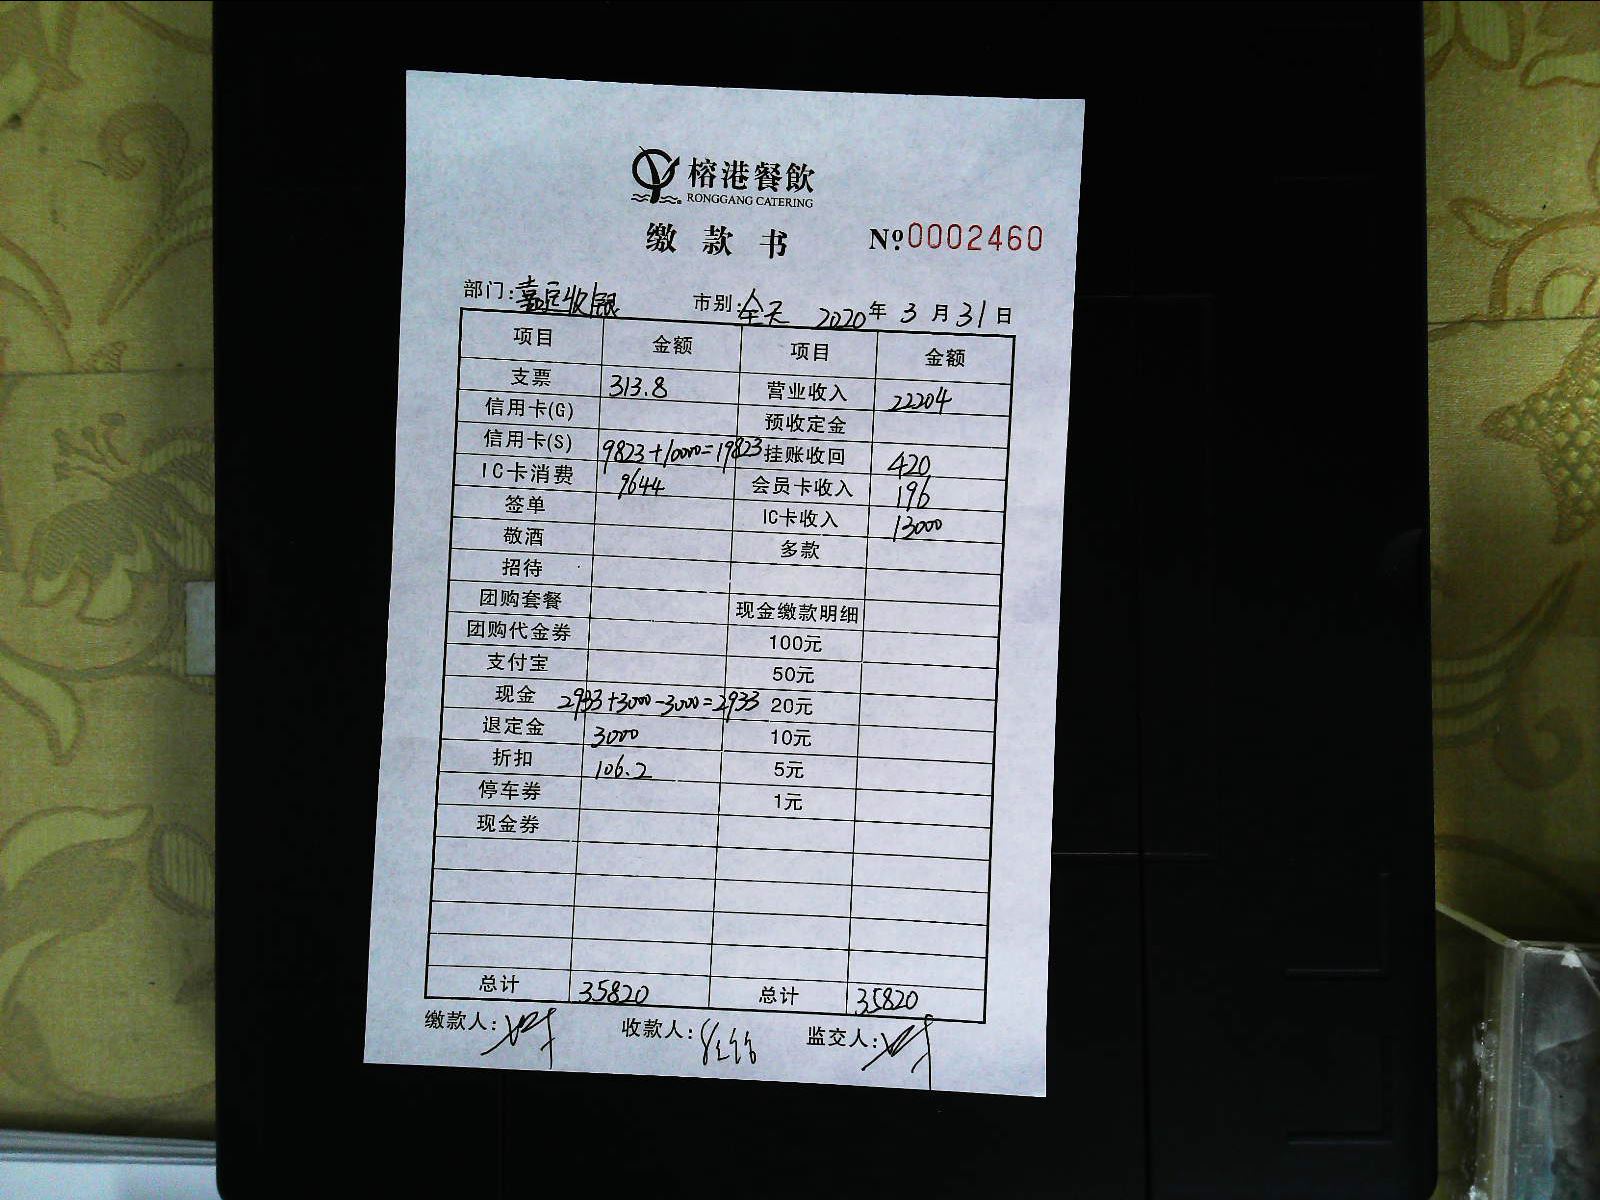 榕港餐飲
RONGGANG CATERING
缴款书 №0002460
部门:嘉定收银 市别:全天 2020年3月31日
项目 金额 项目 金额
支票 313.8 营业收入 22204
信用卡(G) 预收定金
信用卡(S) 9823+10000=19823 挂账收回 420
IC卡消费 9644 会员卡收入 196
签单 IC卡收入 13000
敬酒 多款
招待
团购套餐 现金缴款明细
团购代金券 100元
支付宝 50元
现金 2933+3000-3000=2933 20元
退定金 3000 10元
折扣 106.2 5元
停车券 1元
现金券
总计 35820 总计 35820
缴款人: 收款人: 监交人: